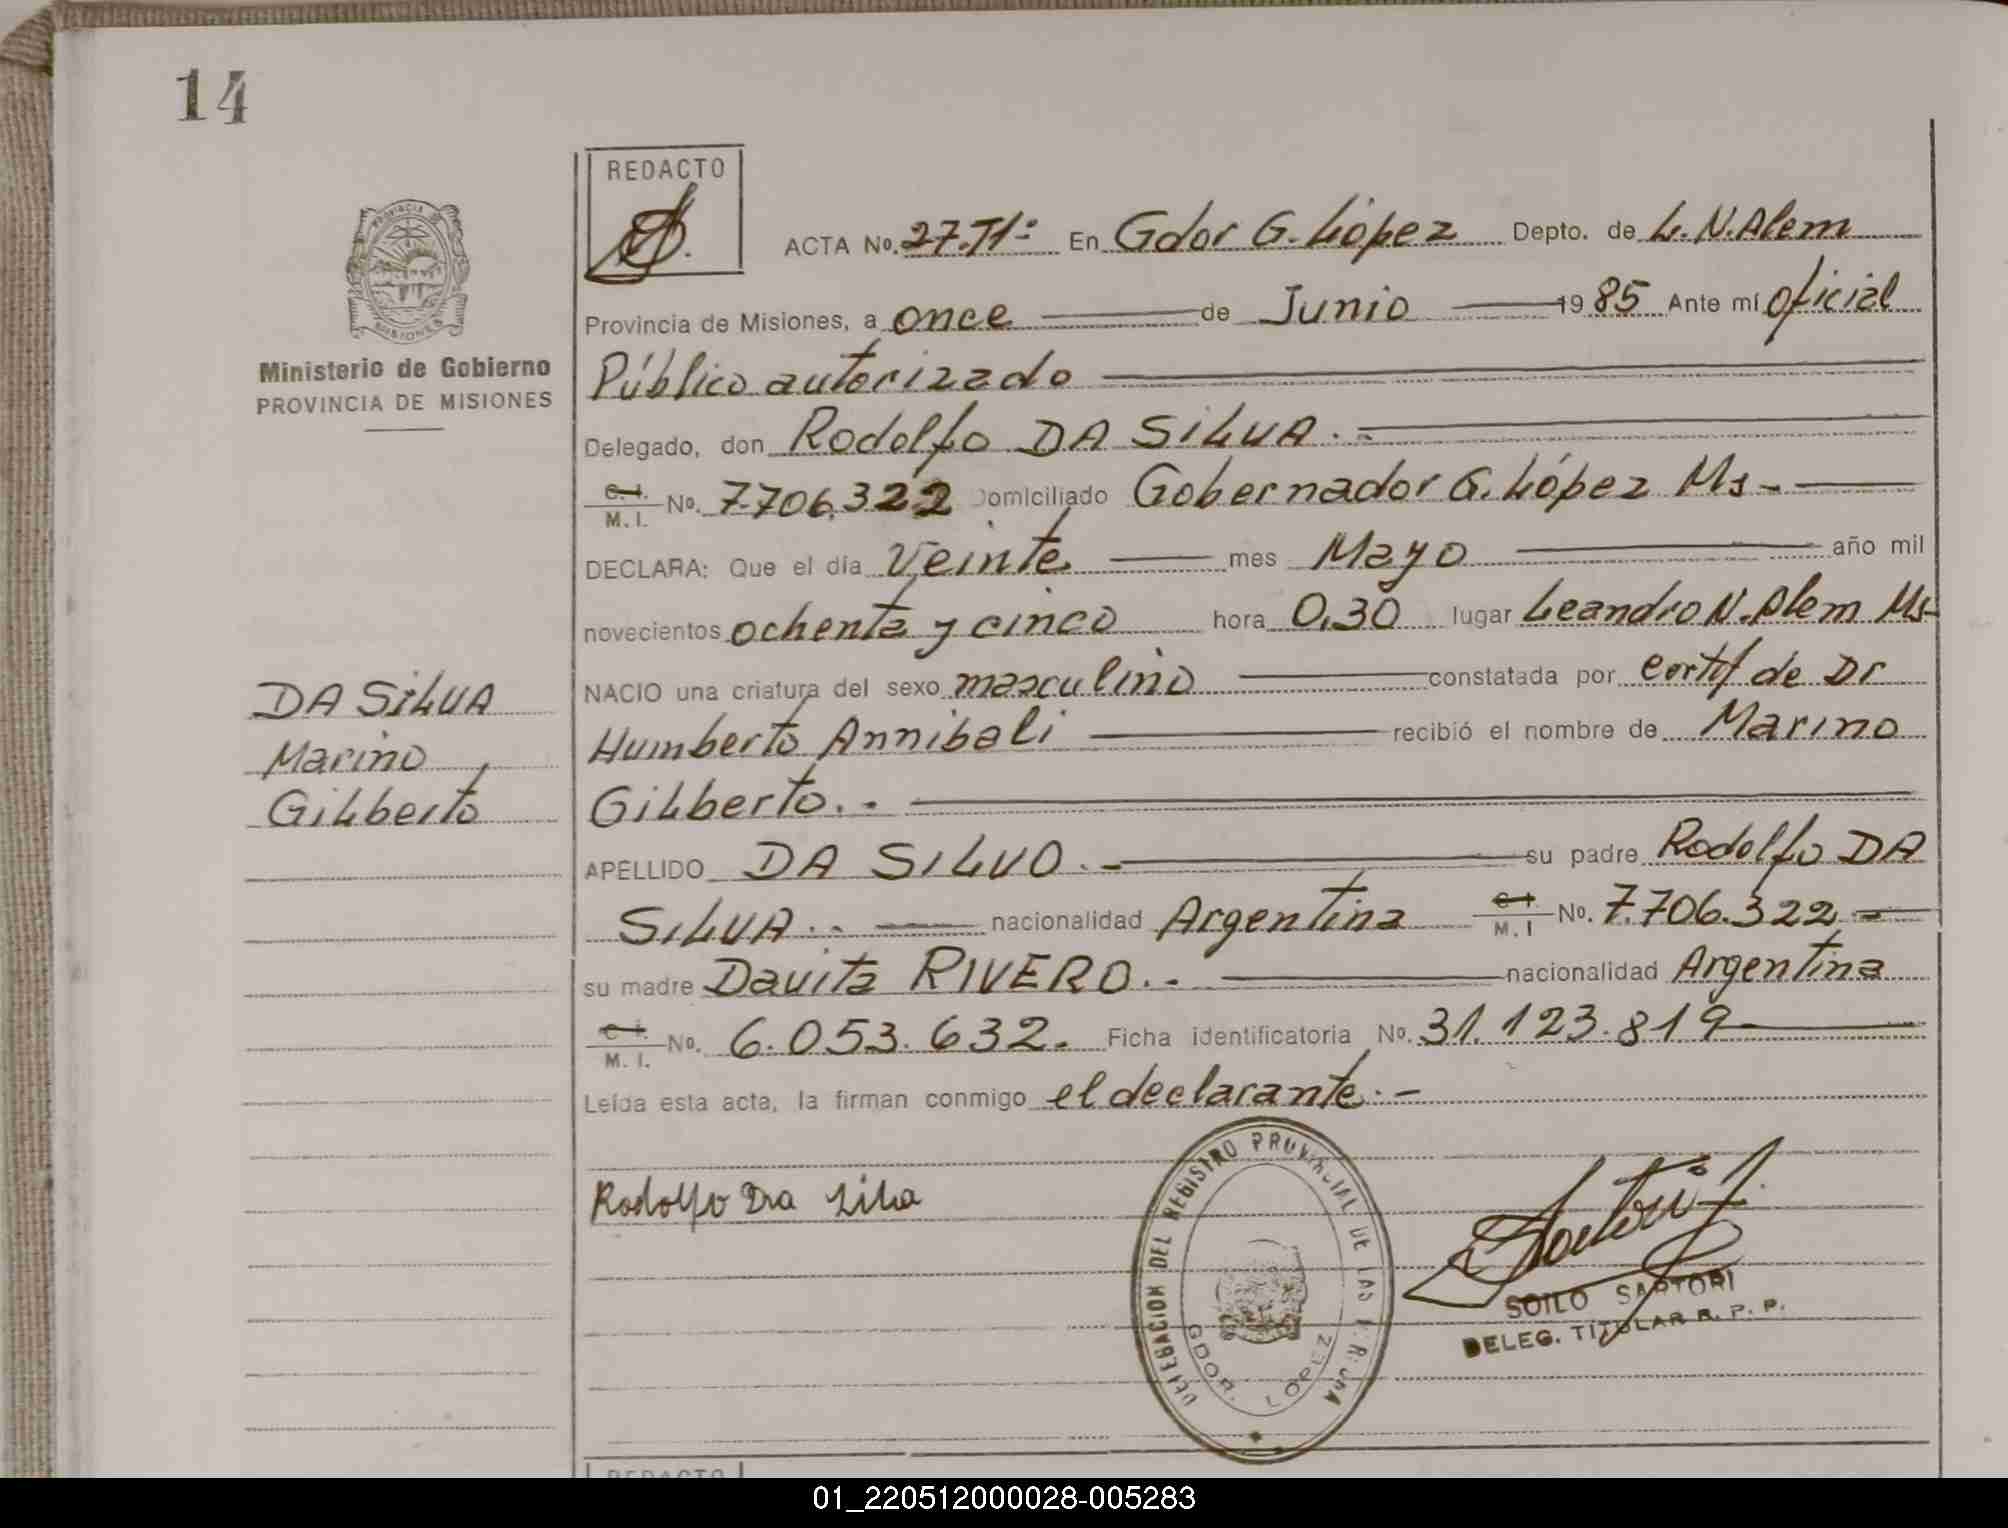 14
REDACTO
ACTA No. 27.T1º En Gdor G. López Depto. de L. N. Alem
Provincia de Misiones, a once de Junio 1985 Ante mí oficial
Público autorizado
Delegado, don Rodolfo DA SILVA.
C. I. M. I. No. 7.706.322 Domiciliado Gobernador G. López Ms-
DECLARA: Que el día Veinte mes Mayo año mil
novecientos ochenta y cinco hora 0,30 lugar Leandro N. Alem Ms-
NACIO una criatura del sexo masculino constatada por certif de Dr
Humberto Annibali recibió el nombre de Marino
Gilberto.-
APELLIDO DA SILVO.- su padre Rodolfo DA
SILVA.. nacionalidad Argentina C. I. M. I No. 7.706.322-
su madre Davita RIVERO.. nacionalidad Argentina
C. I. M. I. No. 6.053.632. Ficha identificatoria No. 31.123.819
Leída esta acta, la firman conmigo el declarante.-
PROVINCIA DE
MISIONES
Ministerio de Gobierno
PROVINCIA DE MISIONES
DA SILVA
Marino
Gilberto
Rodolfo Da Silva
DELEGACION DEL REGISTRO PROVINCIAL DE LAS PERSONAS
GDOR. LOPEZ
Sartori
SOILO SARTORI
DELEG. TITULAR R. P. P.
REDACTO
01_220512000028-005283